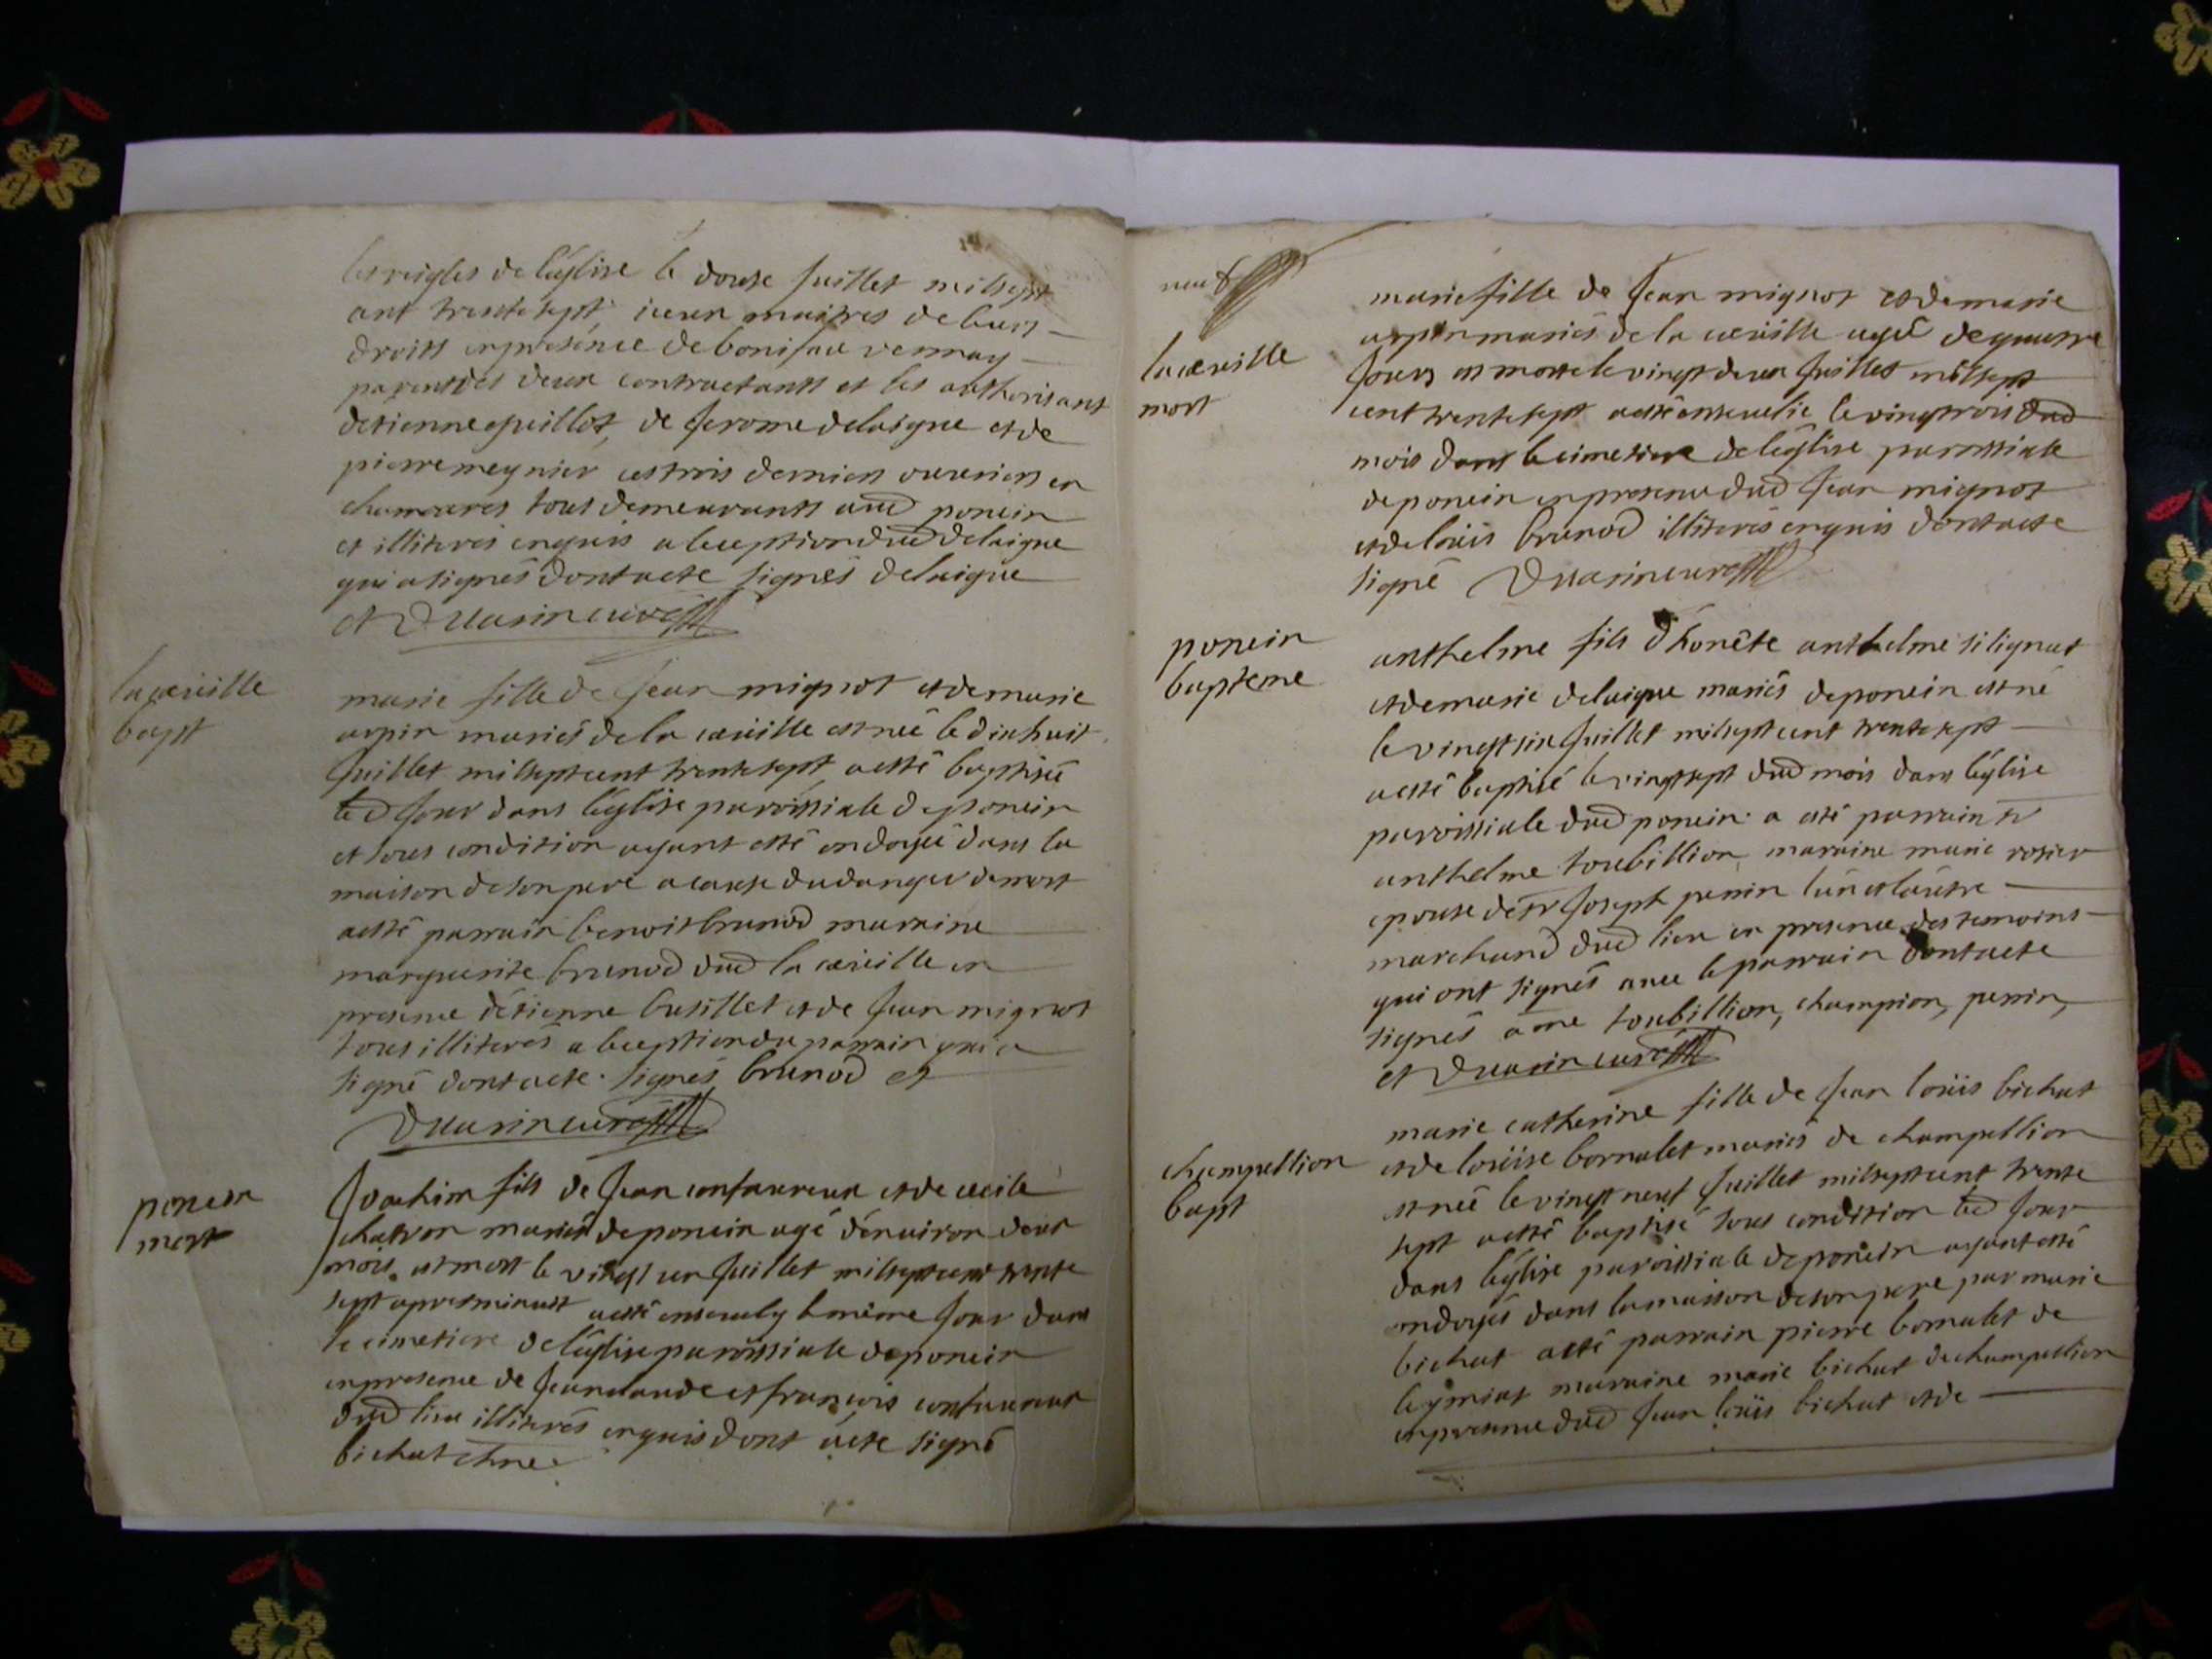 les reigles de l'églize le douse juillet mil sept
cent trente sept, iceux maitres de leurs
droits en presénce de boniface vernay
parent des deux contractants et les authorisants
detienne guillot, de jerome delaigue et de
pierre meynier ces trois derniers ouvriers en
chamoures tous demeurants aud poncin
et illiterés enquis a lexception dud delaigue
qui a signés dont acte signés delaigue
et Duvarin curé
lacueille
bapt
marie fille de jean mignot et de marie
arpin mariés de la cueille est neé le dixhuit
juillet mil sept cent trente sept, a esté baptisée
led jour dans léglise paroissiale de poncin
et sous condition ayant esté ondoyée dans la
maison de son pere a cause du danger de mort
a esté parrain benoit brunod marraine
marguerite brunod dud la cueille en
presence détienne busillet et de jean mignot
tous illiterés a lexception du parrain qui a
signé dont acte. signés brunod et
Duvarin curé
poncin
mort
joachim fils de jean confavreux et de cecile
chatron mariés de poncin agé dénviron deux
mois est mort le vingt un juillet mil sept cent trente
sept apres minuit a esté ensevely le même jour dans
le cimetiere de l'églize paroissiale de poncin
en presence de jean claude et francois confavreux
dud lieu illiterés enquis dont acte signé
bichat
neuf
lacueille
mort
marie fille de jean mignot et de marie
arpin mariés de la cueille ageé de quatre
jours est morte le vingt deux juillet mil sept
cent trente sept a esté ensevelie le vingt trois dud
mois dans le cimetiere de léglise paroissiale
de poncin en presence dud jean mignot
et de loüis brunod illiterés enquis dont acte
signé Duvarin curé
poncin
bapteme
anthelme fils d'honéte anthelme silignat
et de marie delaigue mariés de poncin est né
le vingt six juillet mil sept cent trente sept
a esté baptisé le vingt sept dud mois dans léglise
paroissiale dud poncin a esté parrain sr
anthelme toubillion marraine marie rosier
epouse de sr joseph perrin lun et lautre
marchand dud lieu en presence des temoins
qui ont signés avec le parrain dont acte
signés ame toubillion, champion, perrin,
et Duvarin curé
champellion
bapt
marie catherine fille de jean loüis bichat
et de loüise bornalet mariés de champellion
est neé le vingt neuf juillet mil sept cent trente
sept a esté baptisé sous condition led jour
dans léglise paroissiale de poncin ayant esté
ondoyés dans la maison de son pere par marie
bichat a esté parrain pierre bornalet de
leymiat marraine marie bichat de champellion
en presence dud jean loüis bichat et de